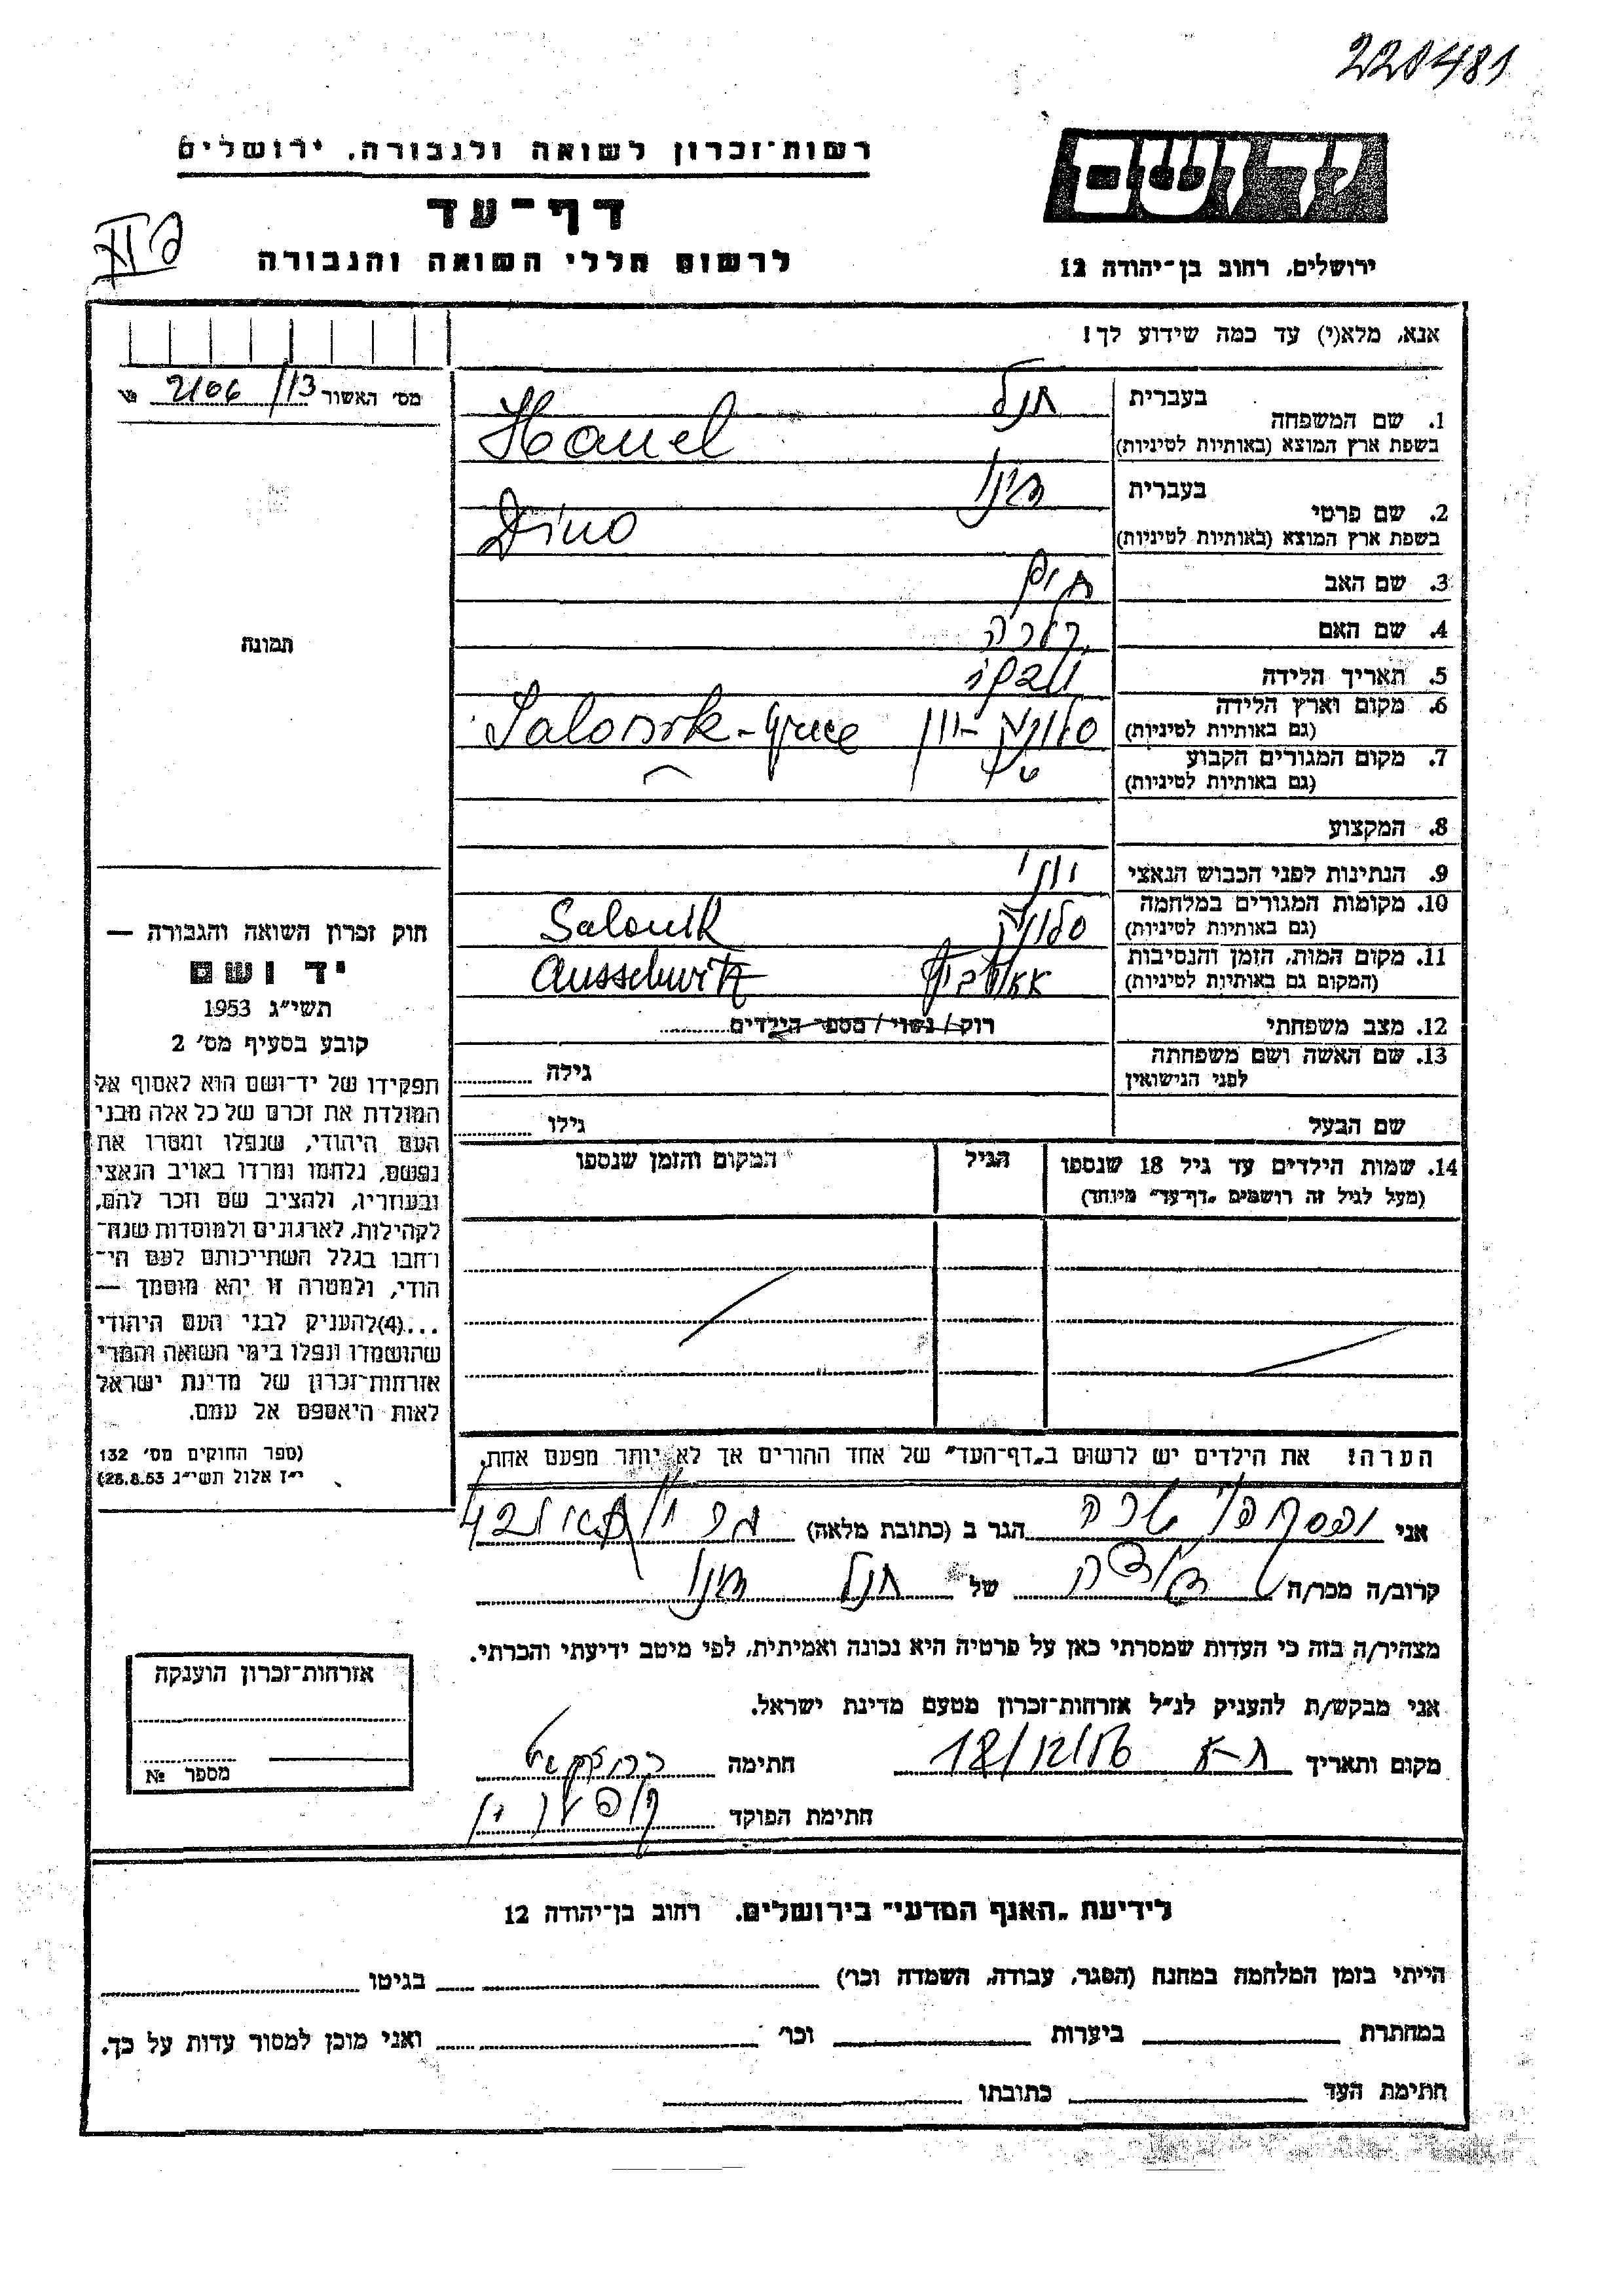 220481
רשות־זכרון לשואה ולגבורה, ירושלים
יד ושם
דף־עד
לרשום חללי השואה והגבורה
ירושלים, רחוב בן־יהודה 12
אנא, מלא(י) עד כמה שידוע לך!
מס' האשור 2106/13
1. שם המשפחה
בעברית
חנל
בשפת ארץ המוצא (באותיות לטיניות)
Hanel
2. שם פרטי
בעברית
דינו
בשפת ארץ המוצא (באותיות לטיניות)
Dino
3. שם האב
חיים
4. שם האם
קלרה
5. תאריך הלידה
6. מקום וארץ הלידה
(גם באותיות לטיניות)
סלוניק - יון Salonik - Grece
7. מקום המגורים הקבוע
(גם באותיות לטיניות)
8. המקצוע
9. הנתינות לפני הכבוש הנאצי
יוני
10. מקומות המגורים במלחמה
(גם באותיות לטיניות)
סלוניק Salonik
11. מקום המות, הזמן והנסיבות
(המקום גם באותיות לטיניות)
Ausschwitz
12. מצב משפחתי
רוק / נשוי / מספר הילדים
13. שם האשה ושם משפחתה
לפני הנישואין
גילה
שם הבעל
גילו
14. שמות הילדים עד גיל 18 שנספו
(מעל לגיל זה רושמים "דף־עד" מיוחד)
הגיל
המקום והזמן שנספו
הערה! את הילדים יש לרשום ב"דף־העד" של אחד ההורים אך לא יותר מפעם אחת.
תמונה
חוק זכרון השואה והגבורה —
יד ושם
תשי"ג 1953
קובע בסעיף מס' 2
תפקידו של יד־ושם הוא לאסוף אל
המולדת את זכרם של כל אלה מבני
העם היהודי, שנפלו ומסרו את
נפשם, נלחמו ומרדו באויב הנאצי
ובעוזריו, ולהציב שם וזכר להם,
לקהילות, לארגונים ולמוסדות שנח־
רבו בגלל השתייכותם לעם הי־
הודי, ולמטרה זו יהא מוסמך —
...(4)להעניק לבני העם היהודי
שהושמדו ונפלו בימי השואה והמרי
אזרחות־זכרון של מדינת ישראל
לאות היאספם אל עמם.
(ספר החוקים מס' 132
י"ז אלול תשי"ג 28.8.53)
אני שרה הגר ב (כתובת מלאה)
קרוב/ה מכר/ה דודה של חנל דינו
מצהיר/ה בזה כי העדות שמסרתי כאן על פרטיה היא נכונה ואמיתית, לפי מיטב ידיעתי והכרתי.
אני מבקש/ת להעניק לנ"ל אזרחות־זכרון מטעם מדינת ישראל.
מקום ותאריך 18/12/56 חתימה
חתימת הפוקד
אזרחות־זכרון הוענקה
מספר №
לידיעת "האגף המדעי" בירושלים, רחוב בן־יהודה 12
הייתי בזמן המלחמה במחנה (הסגר, עבודה, השמדה וכו') בגיטו
במחתרת ביערות וכו' ואני מוכן למסור עדות על כך.
חתימת העד כתובתו